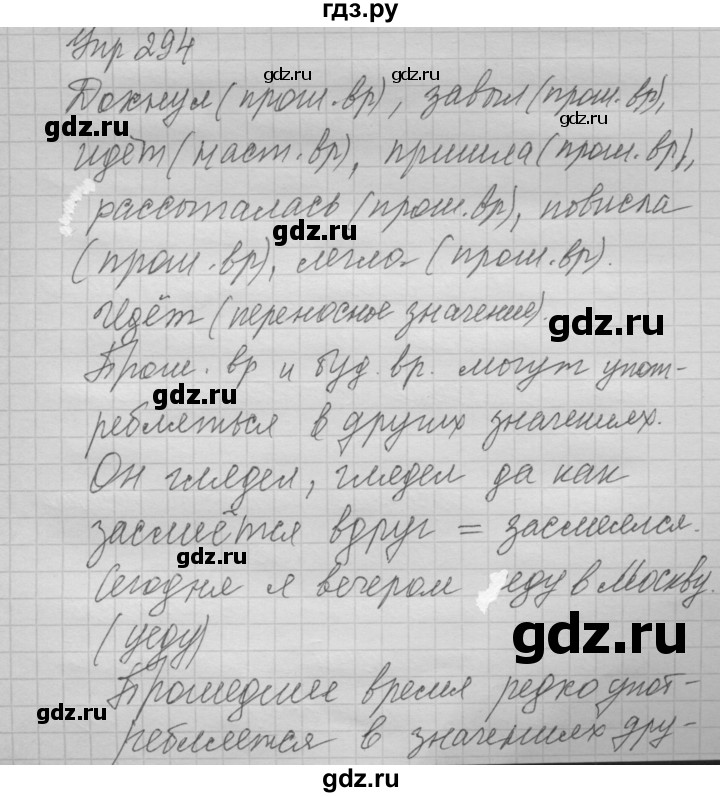 гдз.ру
Упр 294
gdz.ru gdz.ru
Дохнул (прош. вр), завыл (прош. вр),
gdz.ru gdz.ru
идёт (наст. вр), пришла (прош. вр),
рассыпалась (прош. вр), повисла
gdz.ru
(прош. вр), легла (прош. вр).
Идёт (переносное значение).
gdz.ru
Прош. вр и буд. вр. могут упот-
gdz.ru
ребляться в других значениях.
Он глядел, глядел да как
засмеётся вдруг = засмеялся.
gdz.ru
Сегодня я вечером еду в Москву.
(уеду)
gdz.ru
Прошедшее время редко упот-
gdz.ru
ребляется в значениях дру-
gdz.ru